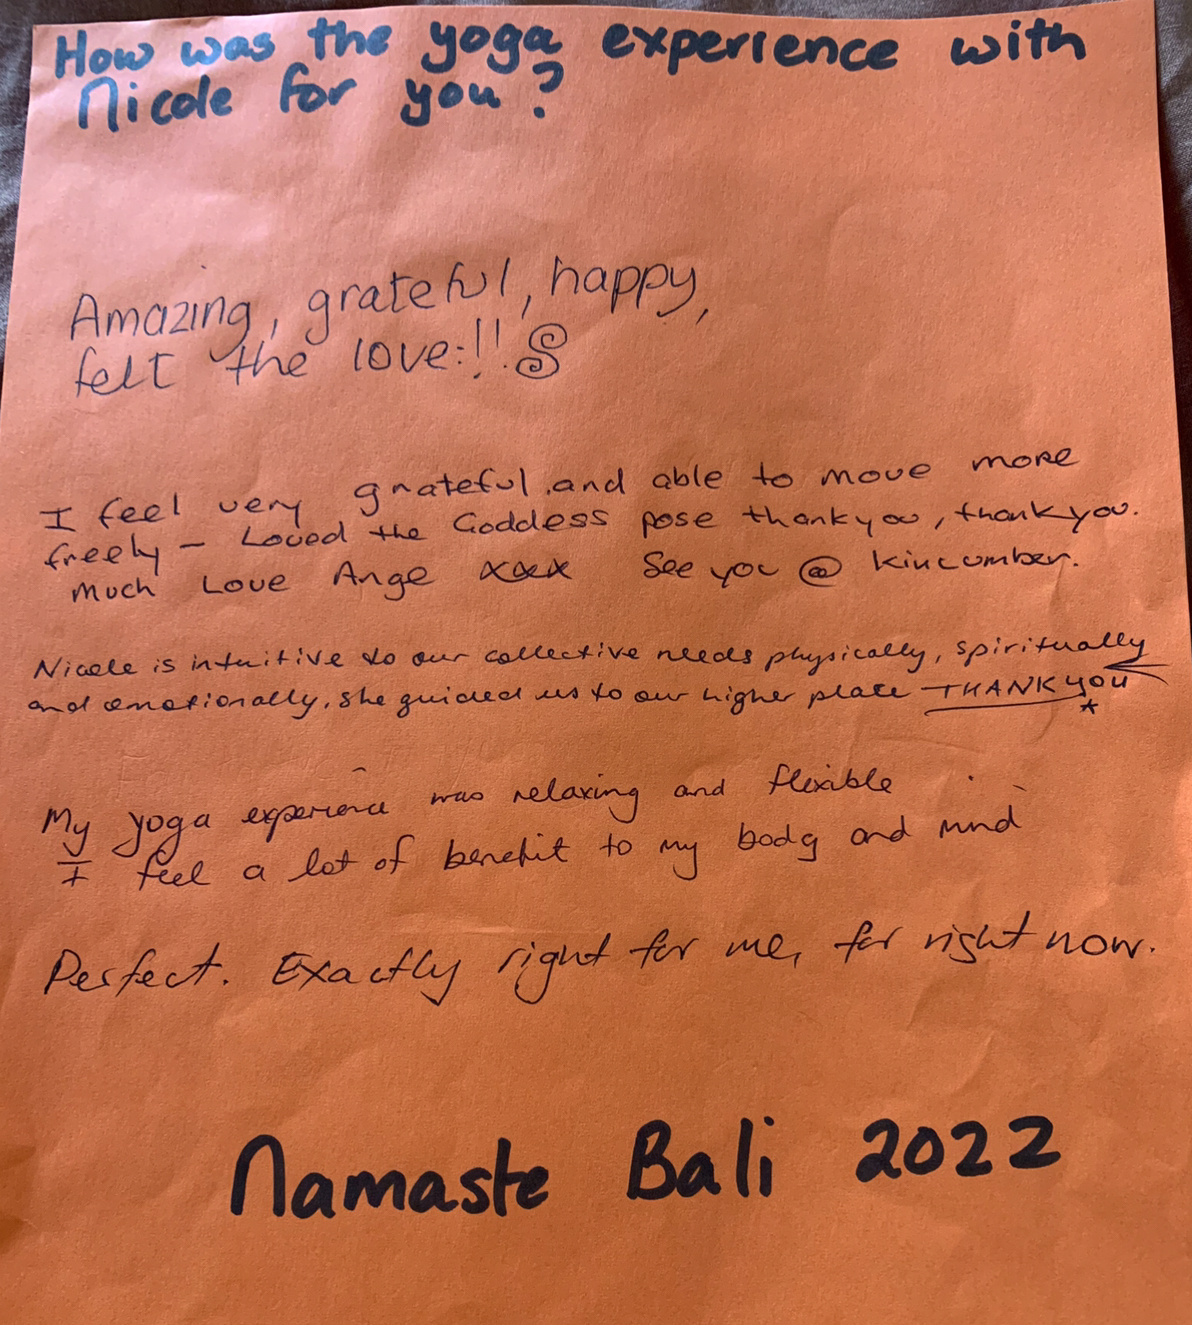 How was the yoga experience with
Nicole for you?
Amazing, grateful, happy,
felt the love!!
I feel very grateful and able to move more
freely - Loved the Goddess pose thankyou, thankyou.
Much Love Ange xxx See you @ Kincumber.
Nicole is intuitive to our collective needs physically, spiritually
and emotionally, she guided us to our higher place THANK YOU
My yoga experience was relaxing and flexible
I feel a lot of benefit to my body and mind
Perfect. Exactly right for me, for right now.
Namaste Bali 2022